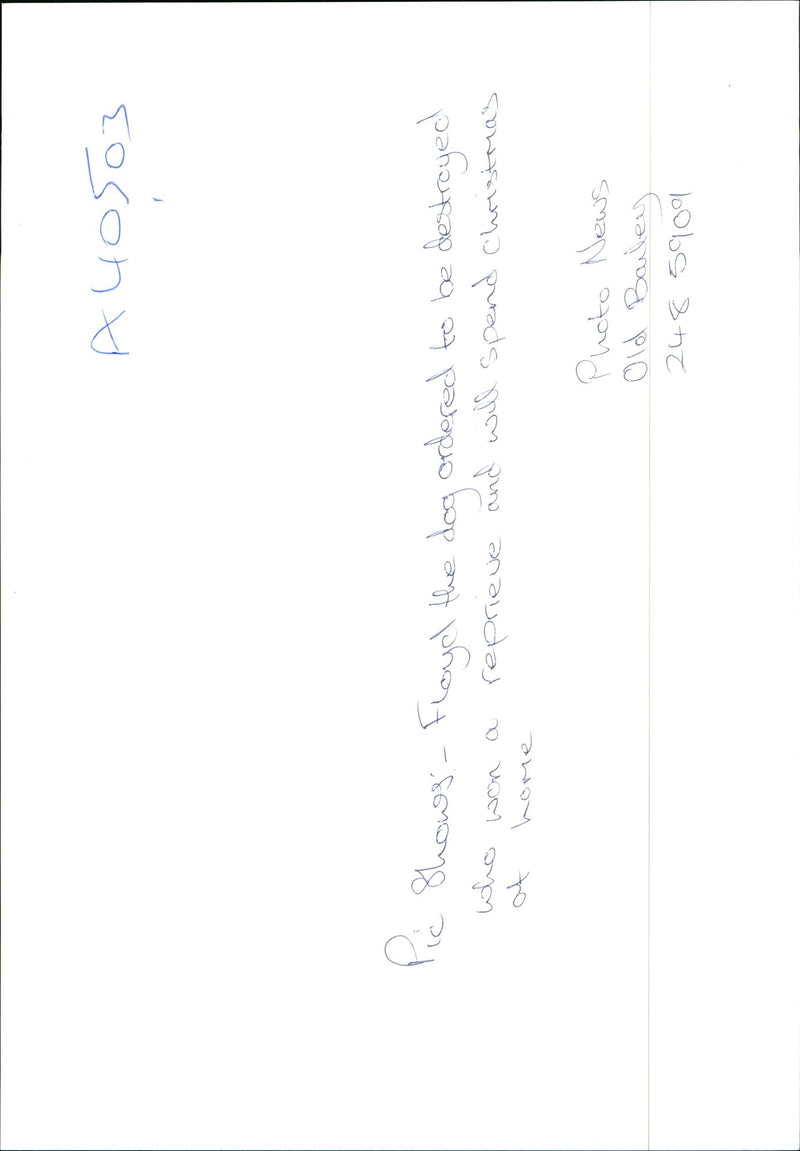 A40503
Pic Shows:- Floyd the dog ordered to be destroyed
who won a reprieve and will spend Christmas
at home
Photo News
Old Bailey
248 5909